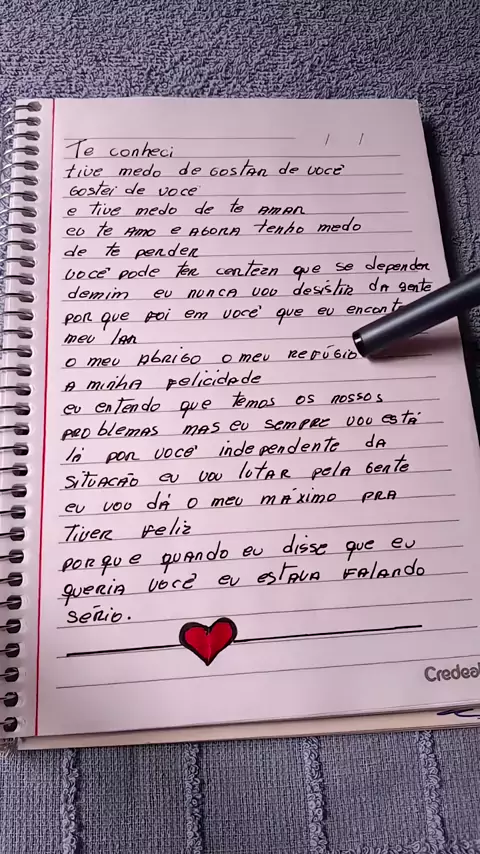 / /
Te conheci
tive medo de gostar de você
gostei de você
e tive medo de te amar
eu te amo e agora tenho medo
de te perder
você pode ter certeza que se depender
demim eu nunca vou desistir da gente
por que foi em você que eu
meu lar
o meu abrigo o meu refúgio
a minha felicidade
eu entendo que temos os nossos
problemas mas eu sempre vou está
lá por você independente da
situação eu vou lutar pela gente
eu vou dá o meu máximo pra
tiver feliz
porque quando eu disse que eu
queria você eu estava falando
sério.